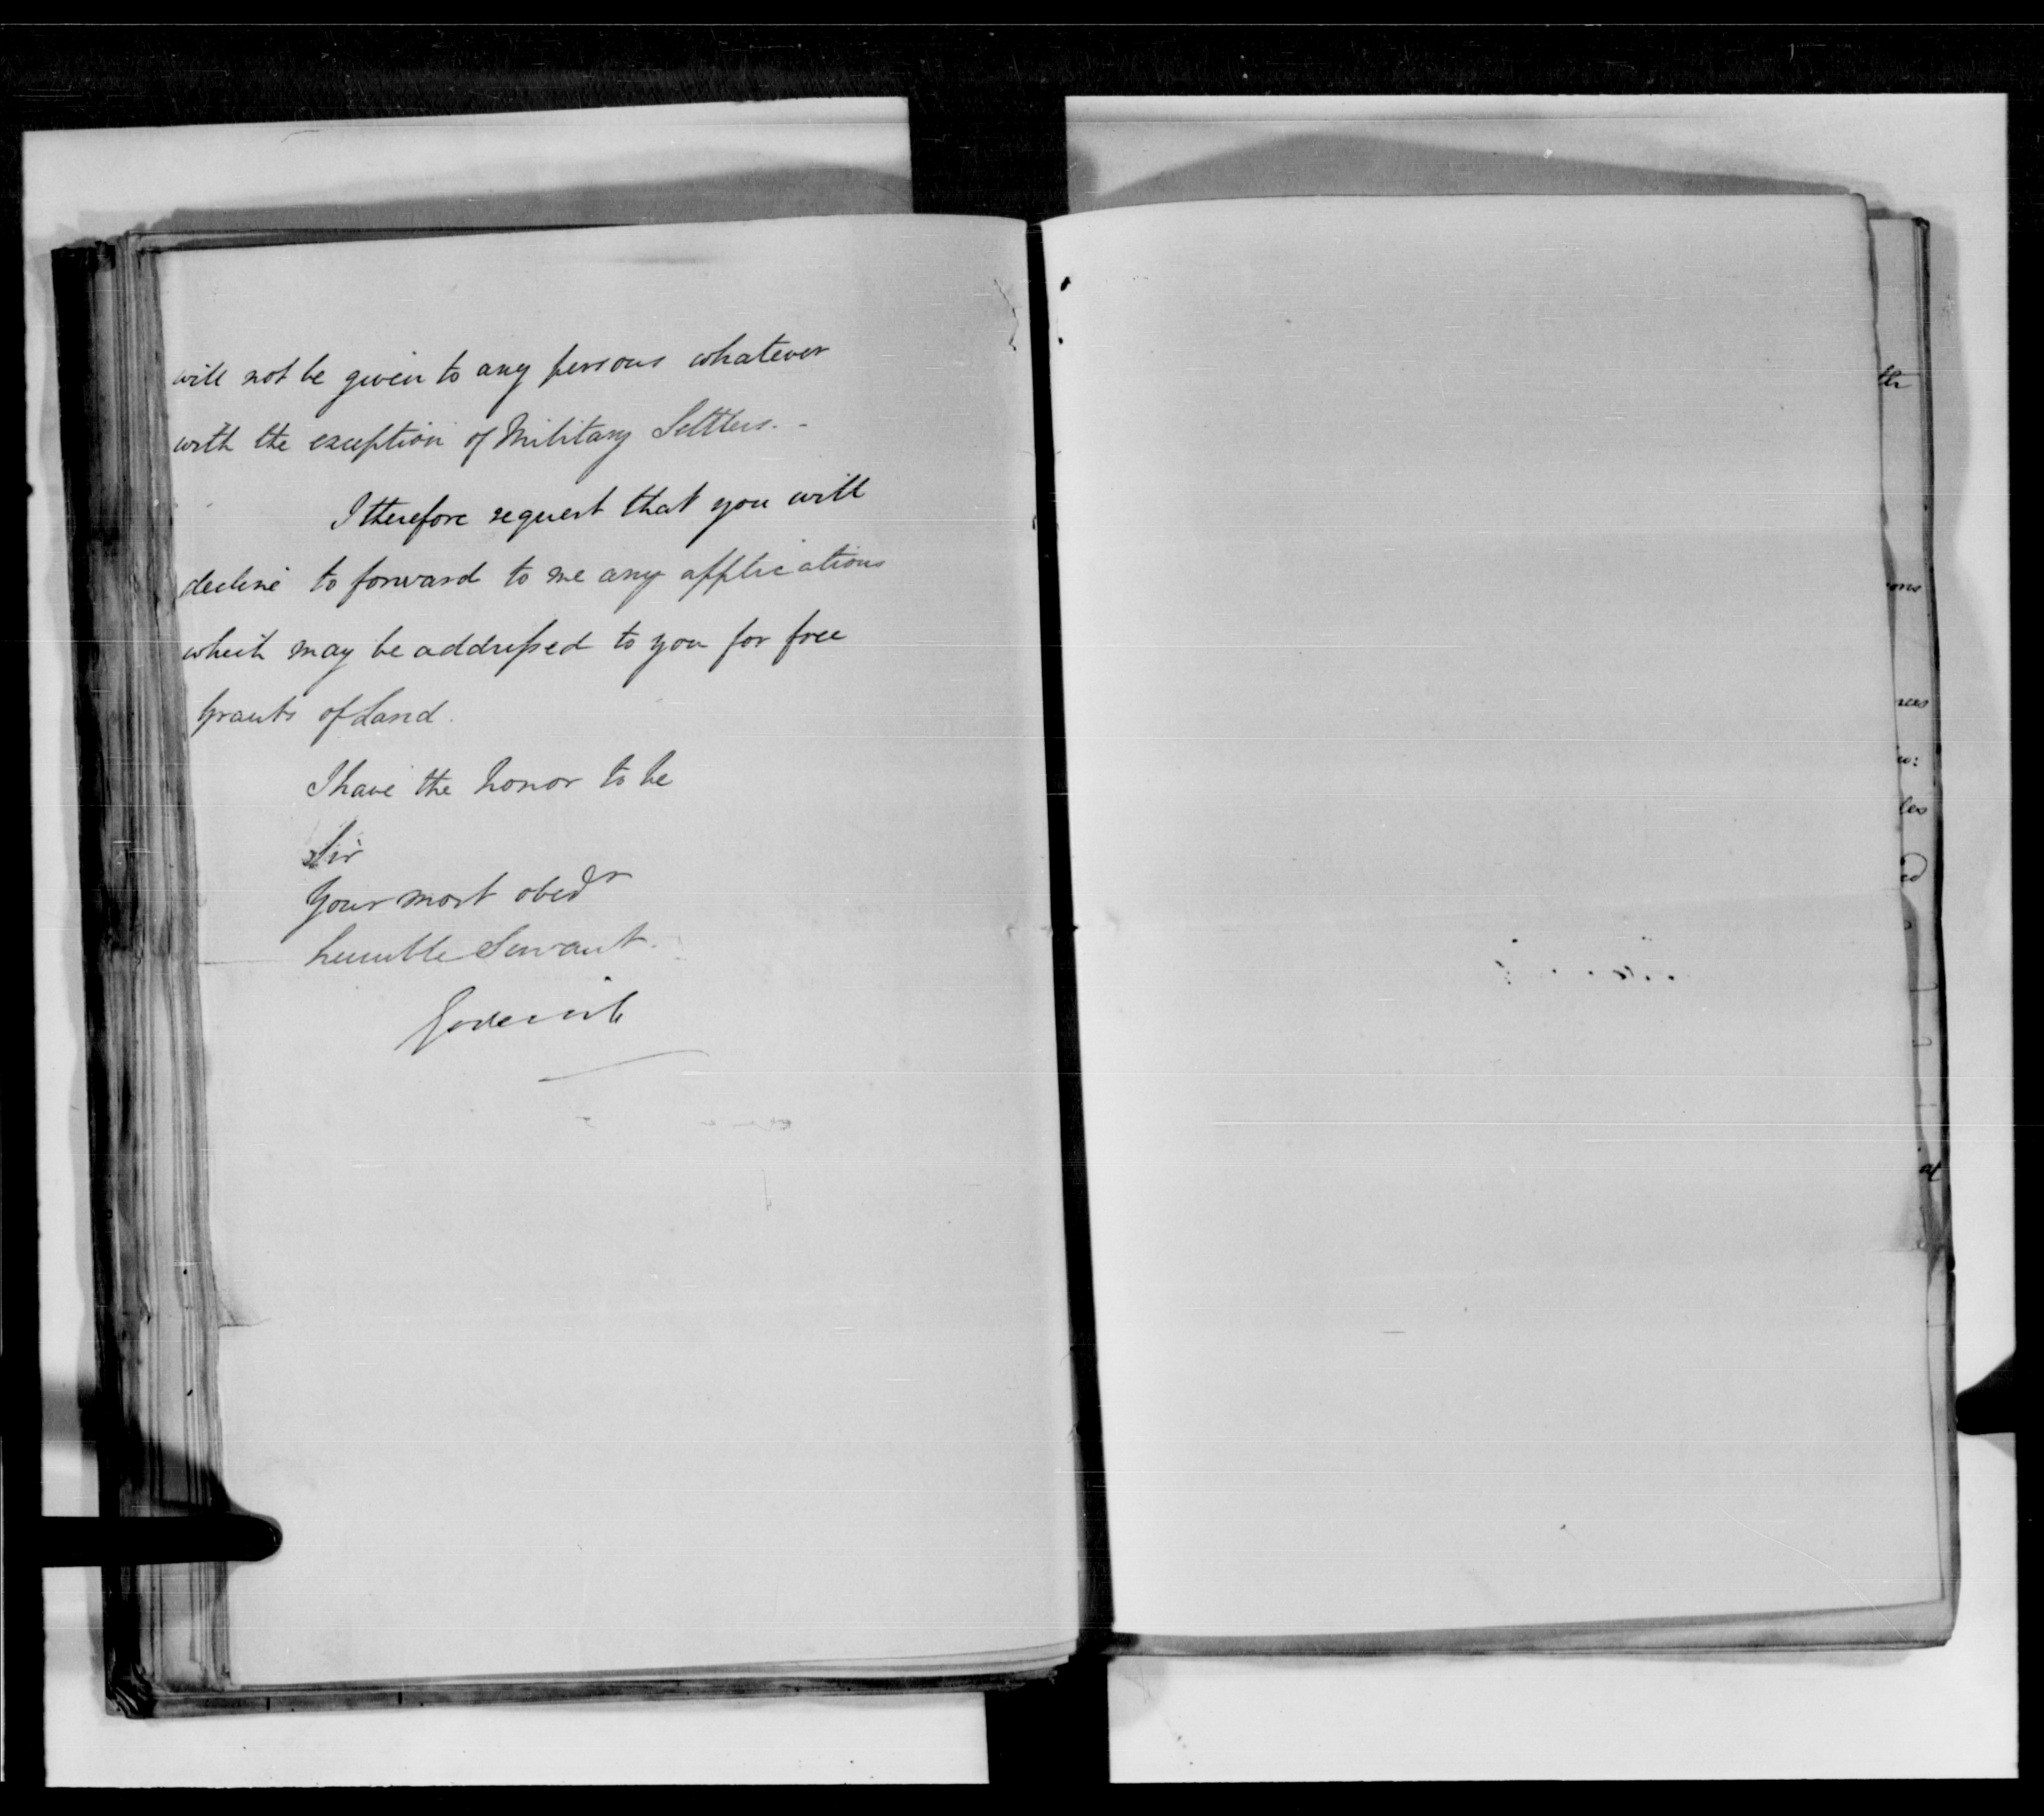 will not be given to any persons whatever
with the exception of Military Settlers. -
I therefore request that you will
decline to forward to me any applications
which may be addressed to you for free
grants of Land.
I have the honor to be
Sir
Your most obedt
humble Servant.
Goderich
th
ons
nces
les
ed
at